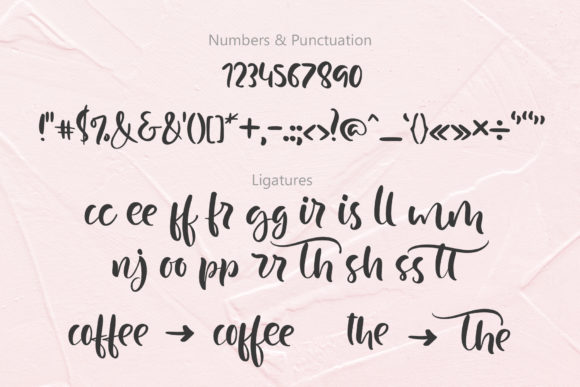 Numbers & Punctuation
1234567890
!"#$%&&&'()[]*+,-.:;<>!?@^_`{}«»×÷‘’“”
Ligatures
cc ee ff fr gg ir is ll mm
nj oo pp rr th sh ss tt
coffee → coffee the → the